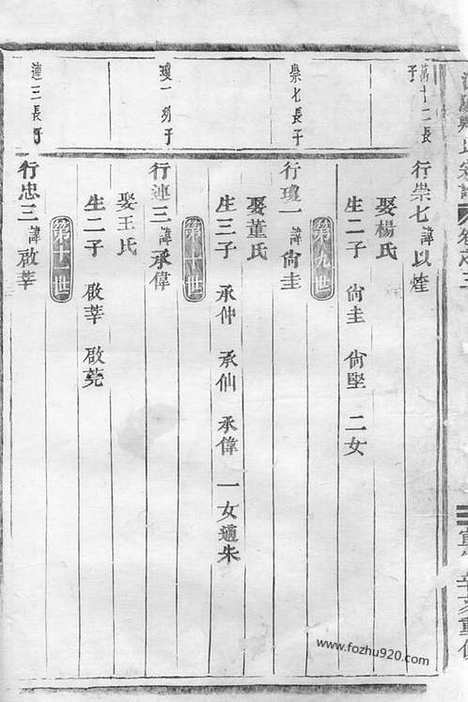 萬十二長子
行崇七諱以煃
娶楊氏
生二子 尙圭 尙堅 二女
第九世
崇七長子
行瓊一諱尙圭
娶董氏
生三子 承仲 承仙 承偉 一女適朱
第十世
瓊一幼子
行連三諱承偉
娶王氏
生二子 啟莘 啟莞
第十一世
連三長子
行忠三諱啟莘
www.fozhu920.com